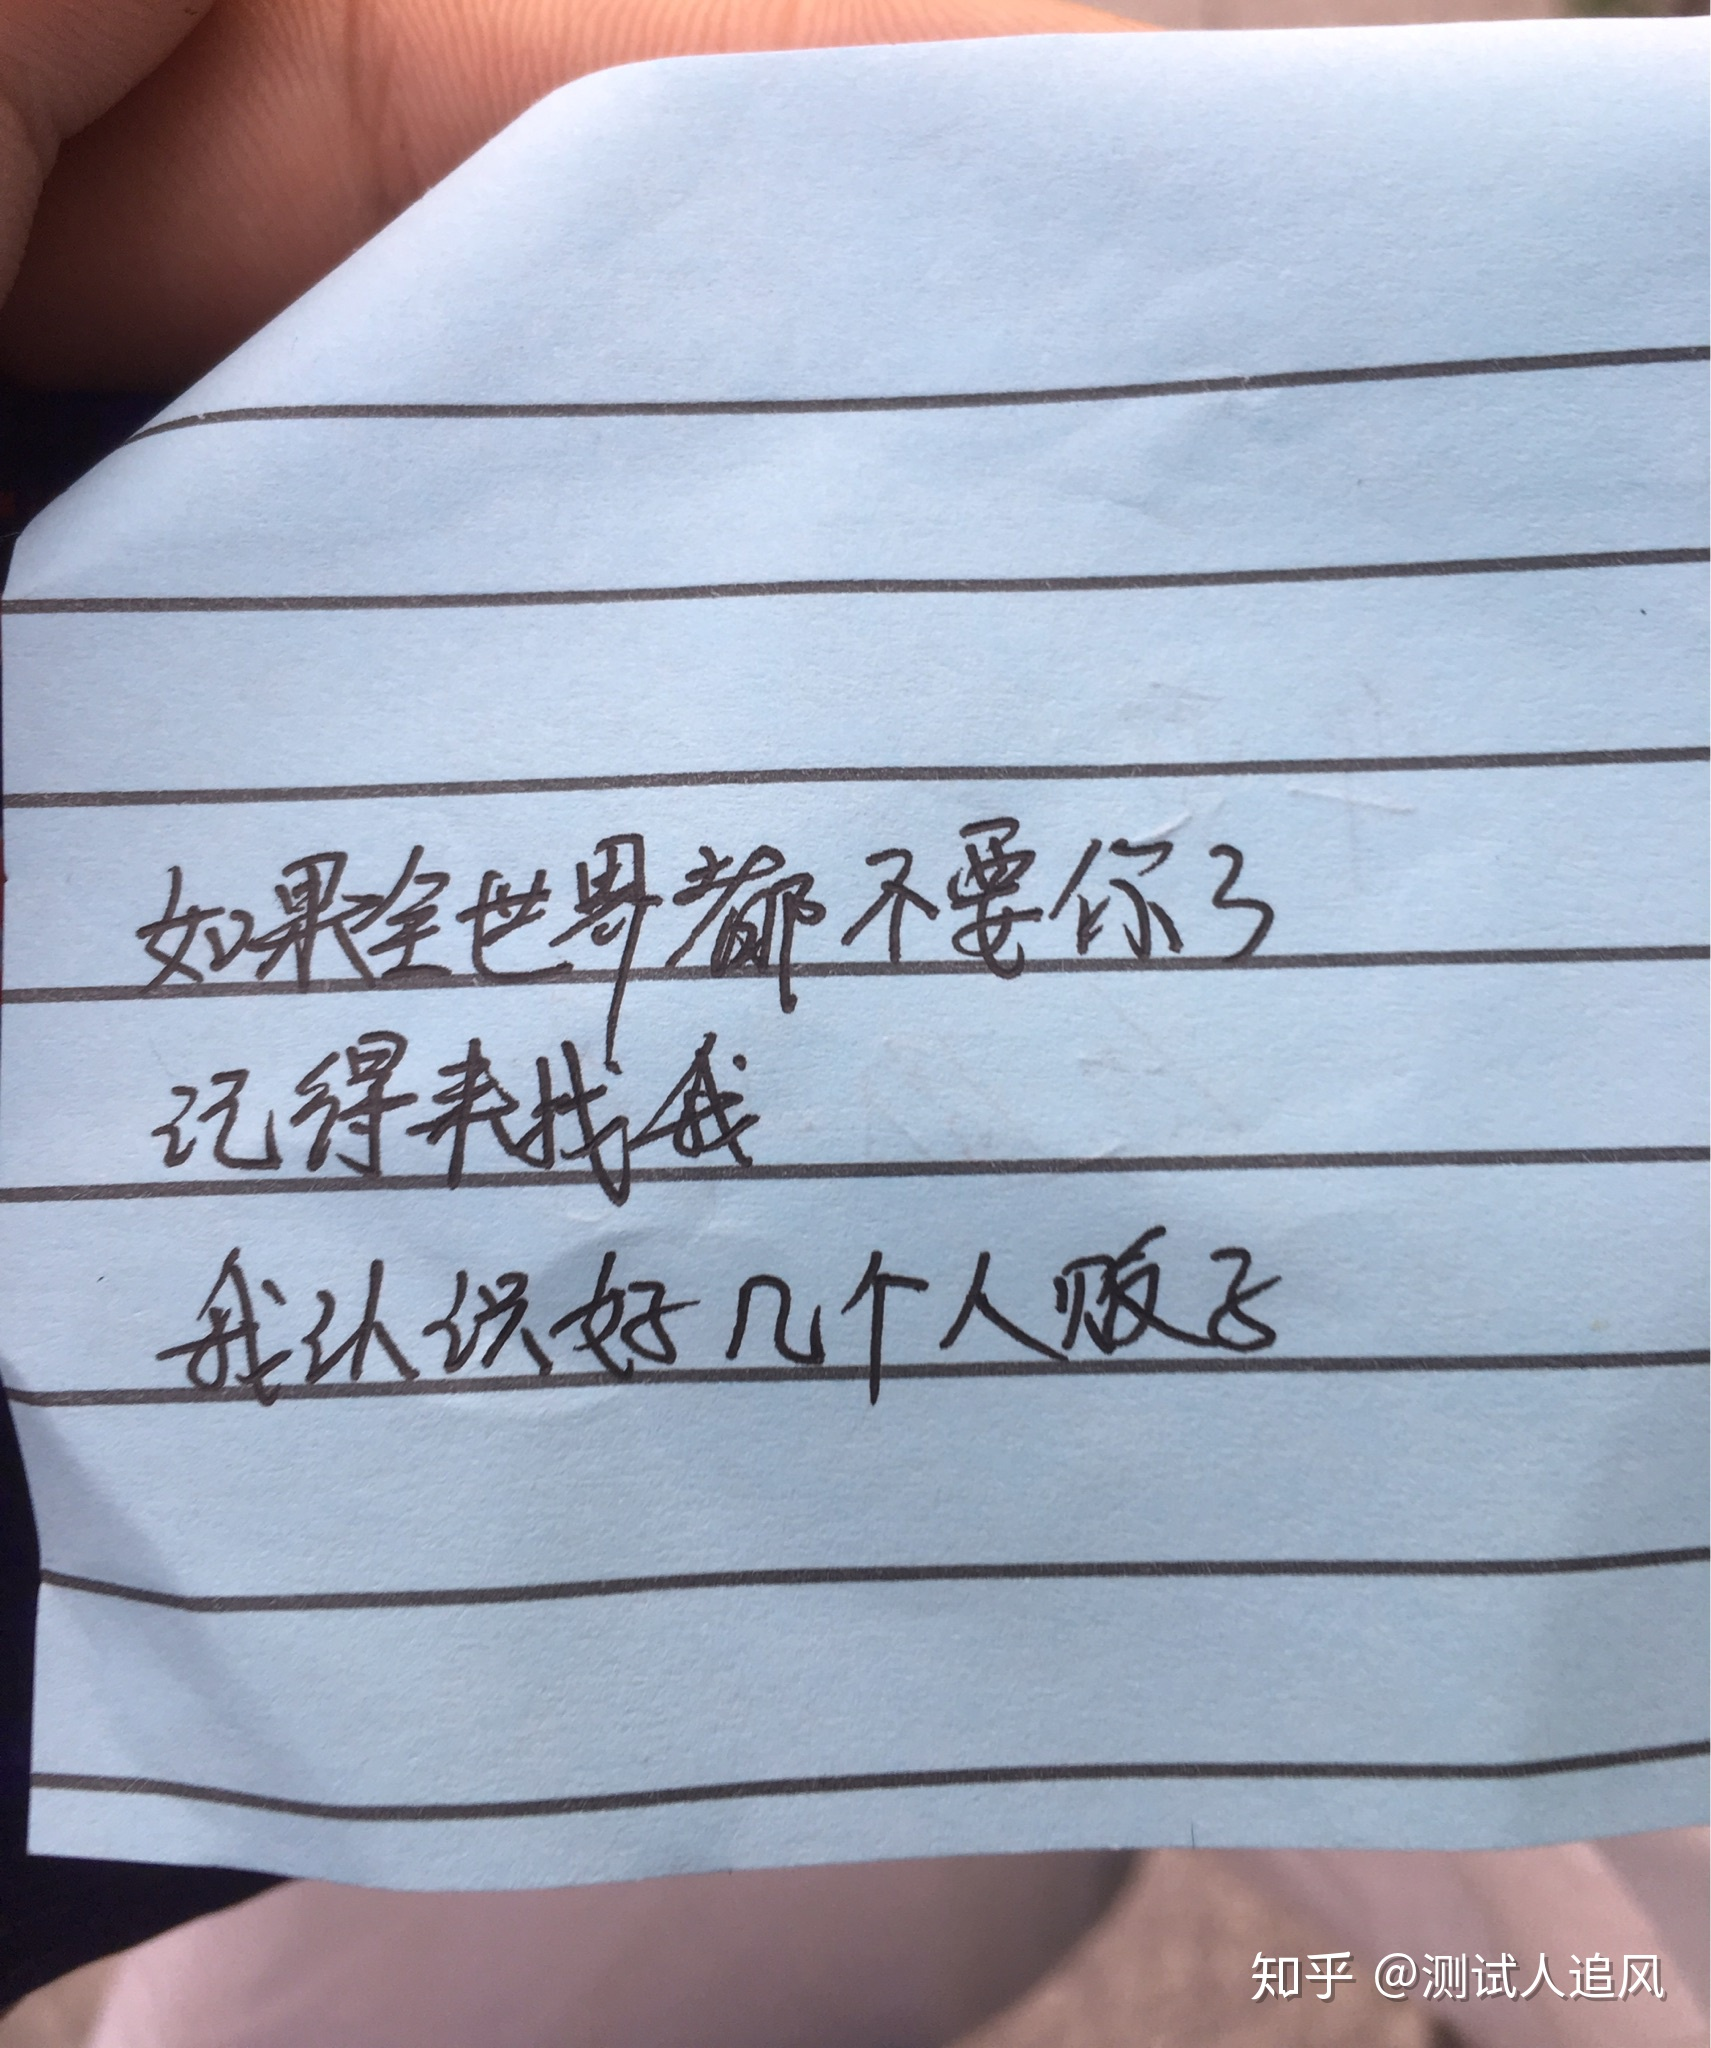 如果全世界都不要你了
记得来找我
我认识好几个人贩子
知乎 @测试人追风